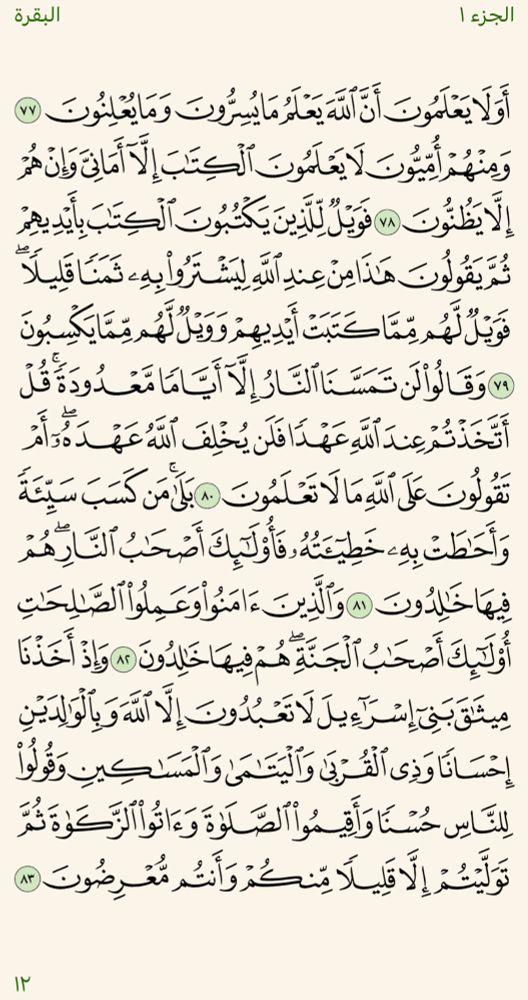 الجزء ١
البقرة
أَوَلَا يَعْلَمُونَ أَنَّ ٱللَّهَ يَعْلَمُ مَا يُسِرُّونَ وَمَا يُعْلِنُونَ ٧٧
وَمِنْهُمْ أُمِّيُّونَ لَا يَعْلَمُونَ ٱلْكِتَٰبَ إِلَّآ أَمَانِىَّ وَإِنْ هُمْ
إِلَّا يَظُنُّونَ ٧٨ فَوَيْلٌ لِّلَّذِينَ يَكْتُبُونَ ٱلْكِتَٰبَ بِأَيْدِيهِمْ
ثُمَّ يَقُولُونَ هَٰذَا مِنْ عِندِ ٱللَّهِ لِيَشْتَرُوا۟ بِهِۦ ثَمَنًا قَلِيلًا ۖ
فَوَيْلٌ لَّهُم مِّمَّا كَتَبَتْ أَيْدِيهِمْ وَوَيْلٌ لَّهُم مِّمَّا يَكْسِبُونَ
٧٩ وَقَالُوا۟ لَن تَمَسَّنَا ٱلنَّارُ إِلَّآ أَيَّامًا مَّعْدُودَةً ۚ قُلْ
أَتَّخَذْتُمْ عِندَ ٱللَّهِ عَهْدًا فَلَن يُخْلِفَ ٱللَّهُ عَهْدَهُۥٓ ۖ أَمْ
تَقُولُونَ عَلَى ٱللَّهِ مَا لَا تَعْلَمُونَ ٨٠ بَلَىٰ ۚ مَن كَسَبَ سَيِّئَةً
وَأَحَٰطَتْ بِهِۦ خَطِيٓـَٔتُهُۥ فَأُو۟لَٰٓئِكَ أَصْحَٰبُ ٱلنَّارِ ۖ هُمْ
فِيهَا خَٰلِدُونَ ٨١ وَٱلَّذِينَ ءَامَنُوا۟ وَعَمِلُوا۟ ٱلصَّٰلِحَٰتِ
أُو۟لَٰٓئِكَ أَصْحَٰبُ ٱلْجَنَّةِ ۖ هُمْ فِيهَا خَٰلِدُونَ ٨٢ وَإِذْ أَخَذْنَا
مِيثَٰقَ بَنِىٓ إِسْرَٰٓءِيلَ لَا تَعْبُدُونَ إِلَّا ٱللَّهَ وَبِٱلْوَٰلِدَيْنِ
إِحْسَانًا وَذِى ٱلْقُرْبَىٰ وَٱلْيَتَٰمَىٰ وَٱلْمَسَٰكِينِ وَقُولُوا۟
لِلنَّاسِ حُسْنًا وَأَقِيمُوا۟ ٱلصَّلَوٰةَ وَءَاتُوا۟ ٱلزَّكَوٰةَ ثُمَّ
تَوَلَّيْتُمْ إِلَّا قَلِيلًا مِّنكُمْ وَأَنتُم مُّعْرِضُونَ ٨٣
١٢